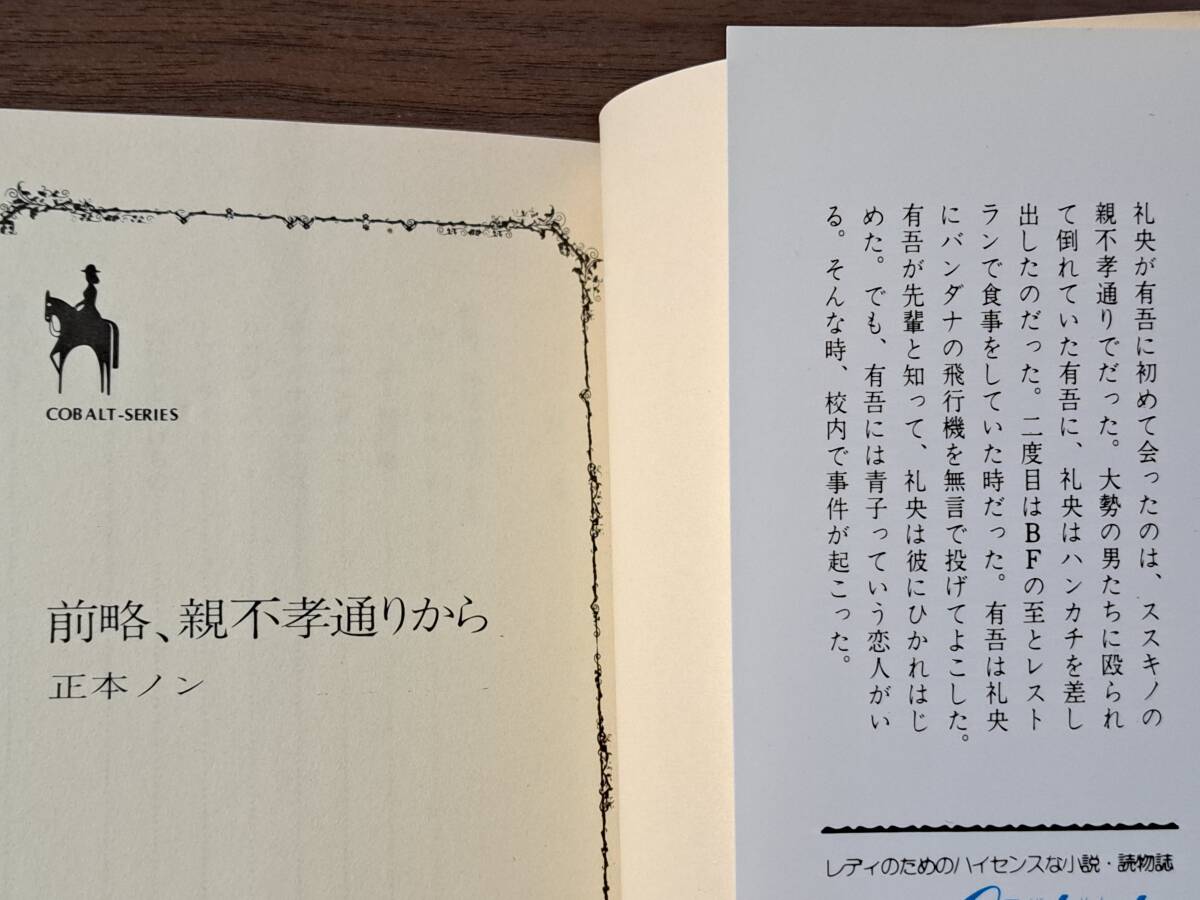 COBALT-SERIES
前略、親不孝通りから
正本ノン
礼央が有吾に初めて会ったのは、ススキノの
親不孝通りでだった。大勢の男たちに殴られ
て倒れていた有吾に、礼央はハンカチを差し
出したのだった。二度目はBFの至とレスト
ランで食事をしていた時だった。有吾は礼央
にバンダナの飛行機を無言で投げてよこした。
有吾が先輩と知って、礼央は彼にひかれはじ
めた。でも、有吾には青子っていう恋人がい
る。そんな時、校内で事件が起こった。
レディのためのハイセンスな小説・読物誌